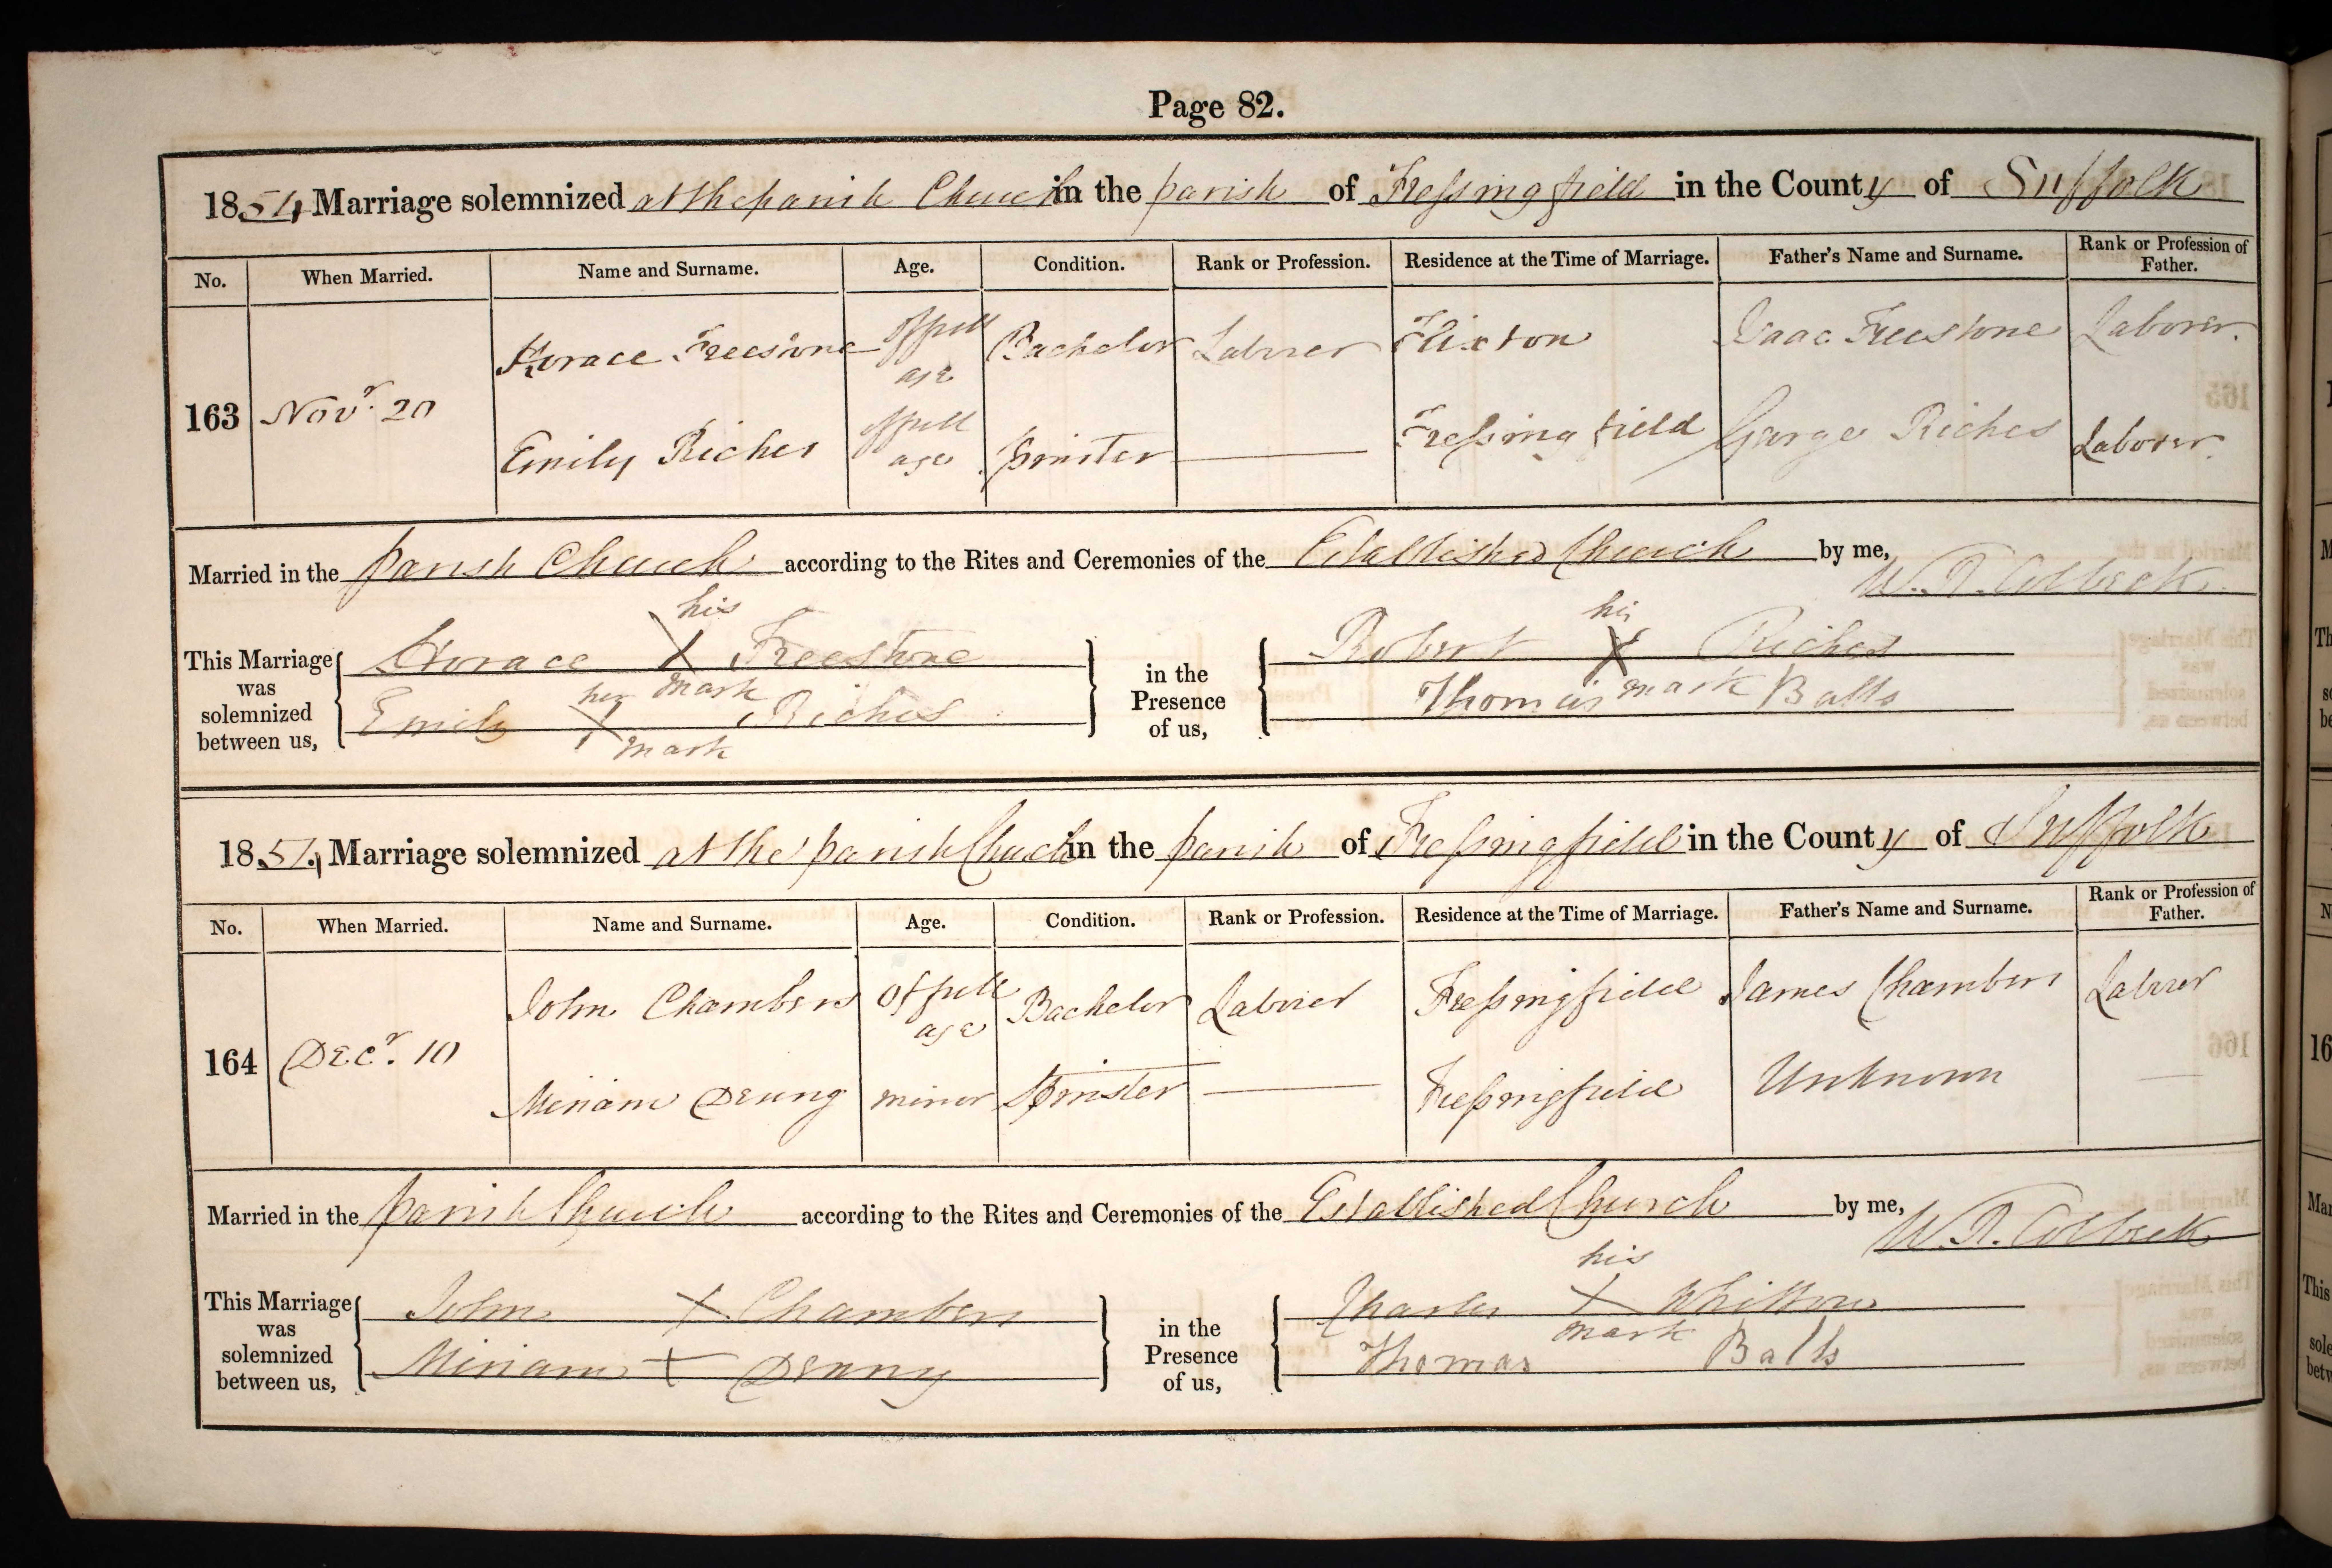 Page 82.
1854 Marriage solemnized at the parish Church in the parish of Fressingfield in the County of Suffolk
No. When Married. Name and Surname. Age. Condition. Rank or Profession. Residence at the Time of Marriage. Father's Name and Surname. Rank or Profession of Father.
163 Novr. 20 Horace Freestone Of full age Bachelor Laborer Flixton Isaac Freestone Laborer.
Emily Riches Of full age Spinster Fressingfield George Riches Laborer.
Married in the parish Church according to the Rites and Ceremonies of the Established Church by me, W. R. Colbeck
This Marriage was solemnized between us,
Horace his X mark Freestone
Emily her X mark Riches
in the Presence of us,
Robert his X mark Riches
Thomas Balls
1854 Marriage solemnized at the parish Church in the parish of Fressingfield in the County of Suffolk
No. When Married. Name and Surname. Age. Condition. Rank or Profession. Residence at the Time of Marriage. Father's Name and Surname. Rank or Profession of Father.
164 Decr. 10 John Chambers Of full age Bachelor Laborer Fressingfield James Chambers Laborer
Miriam Denny minor Spinster Fressingfield Unknown
Married in the parish Church according to the Rites and Ceremonies of the Established Church by me, W. R. Colbeck
This Marriage was solemnized between us,
John X Chambers
Miriam X Denny
in the Presence of us,
Charles his X mark Whitton
Thomas Balls